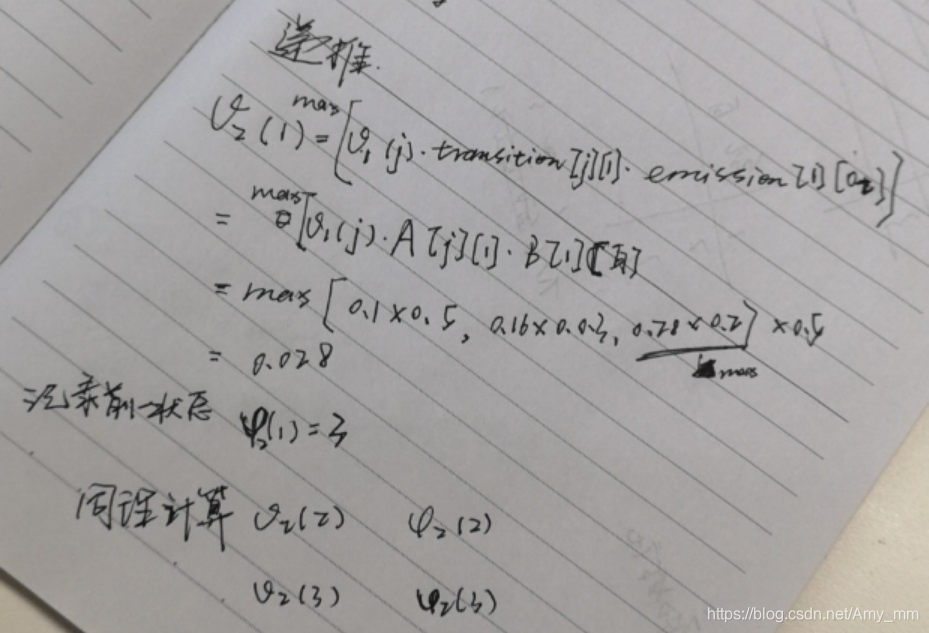 递推.
ϑ₂(1) = max[ϑ₁(j)·transition[j][1]·emission[1][o₂]]
= max[ϑ₁(j)·A[j][1]·B[1][白]]
= max[0.1×0.5, 0.16×0.03, 0.28×0.2]×0.5
max
= 0.028
记录前一状态 φ₂(1)=3
同理计算 ϑ₂(2) φ₂(2)
ϑ₂(3) φ₂(3)
https://blog.csdn.net/Amy_mm